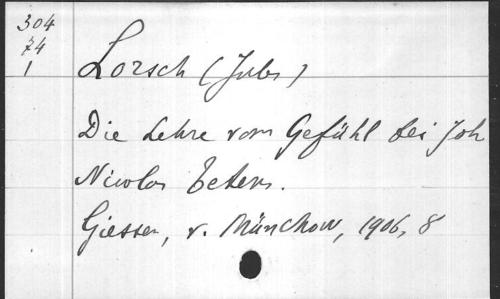 304
74
1
Lorsch (Jules)
Die Lehre vom Gefühl bei Joh
Nicolas Tetens.
Giessen, v. Münchow, 1906, 8